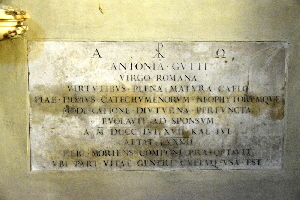 Α ☧ Ω
ANTONIA · GVTTI
VIRGO · ROMANA
VIRTVTIBVS · PLENA · MATVRA · CAELO
PIAE · DOMVS · CATECHVMENORVM · NEOPHYTORVMQVE
MODERATIONE · DIVTVRNA · PERFVNCTA
EVOLAVIT · AD · SPONSVM
XVII · KAL · IVL
HIC · MORIENS · COMPONI · PRAEOPTAVIT
VBI · PARTE · VITAE · GENERI